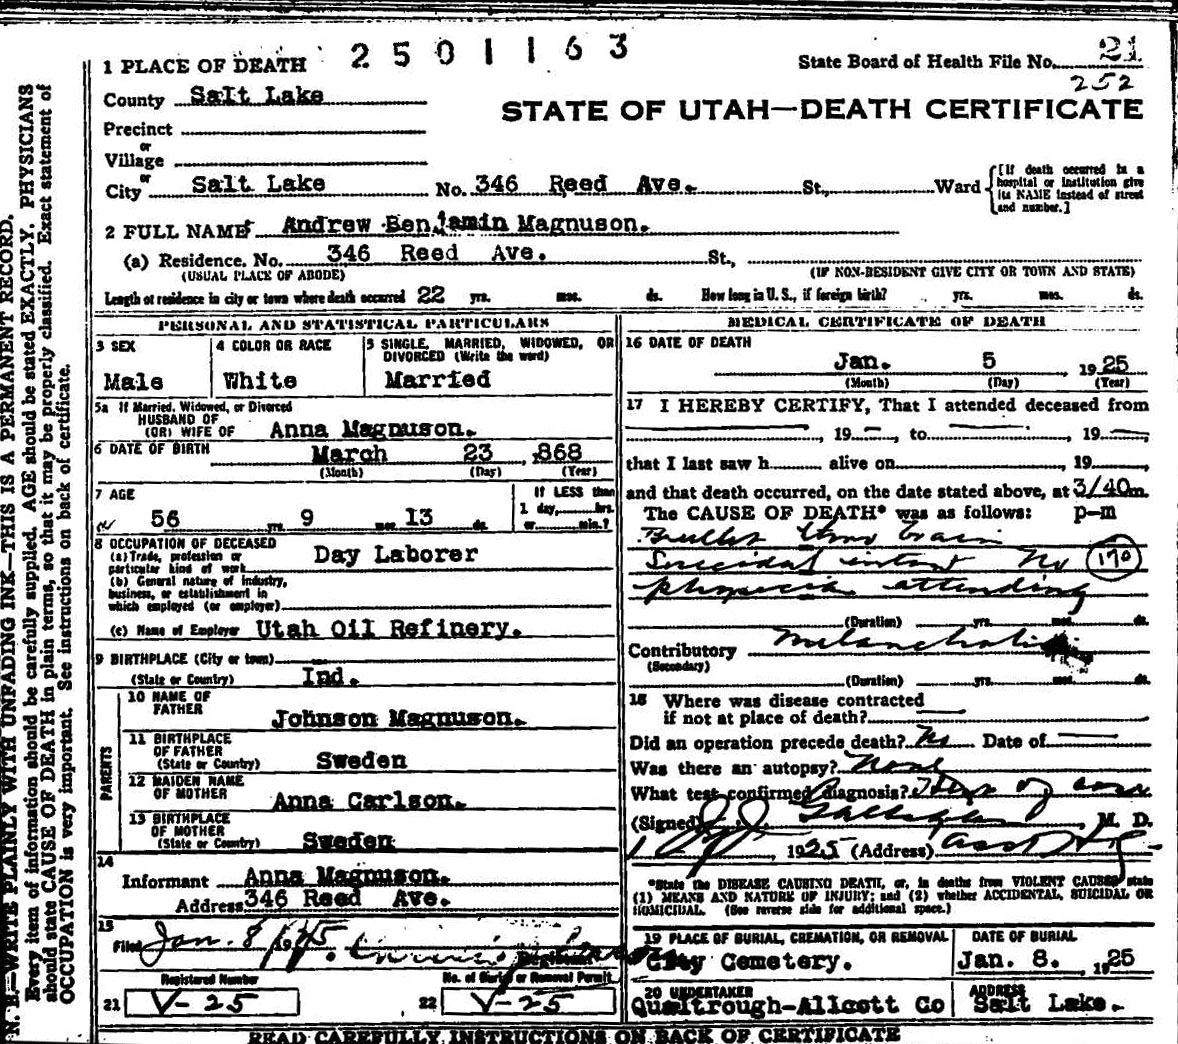 2501163
State Board of Health File No. 21
252
1 PLACE OF DEATH
County Salt Lake
STATE OF UTAH—DEATH CERTIFICATE
Precinct
or
Village
or
City Salt Lake No. 346 Reed Ave. St., Ward
[If death occurred in a hospital or institution give its NAME instead of street and number.]
2 FULL NAME Andrew Benjamin Magnuson.
(a) Residence, No. 346 Reed Ave. St.,
(USUAL PLACE OF ABODE) (IF NON-RESIDENT GIVE CITY OR TOWN AND STATE)
Length of residence in city or town where death occurred 22 yrs. mos. ds. How long in U. S., if foreign birth? yrs. mos. ds.
PERSONAL AND STATISTICAL PARTICULARS
3 SEX
Male
4 COLOR OR RACE
White
5 SINGLE, MARRIED, WIDOWED, OR
DIVORCED (Write the word)
Married
5a If Married, Widowed, or Divorced
HUSBAND OF
(OR) WIFE OF Anna Magnuson.
6 DATE OF BIRTH March 23 ,868
(Month) (Day) (Year)
7 AGE
56 yrs. 9 mos. 13 ds.
If LESS than
1 day, hrs.
or min.?
8 OCCUPATION OF DECEASED
(a) Trade, profession or
particular kind of work Day Laborer
(b) General nature of industry,
business, or establishment in
which employed (or employer)
(c) Name of Employer Utah Oil Refinery.
9 BIRTHPLACE (City or town)
(State or Country) Ind.
PARENTS
10 NAME OF
FATHER Johnson Magnuson.
11 BIRTHPLACE
OF FATHER
(State or Country) Sweden
12 MAIDEN NAME
OF MOTHER Anna Carlson.
13 BIRTHPLACE
OF MOTHER
(State or Country) Sweden
14
Informant Anna Magnuson.
Address 346 Reed Ave.
15
Filed Jan. 8/1925.
Registrar
Registered Number
No. of Burial or Removal Permit
21 V-25 22 V-25
MEDICAL CERTIFICATE OF DEATH
16 DATE OF DEATH
Jan. 5 1925
(Month) (Day) (Year)
17 I HEREBY CERTIFY, That I attended deceased from
, 19 , to , 19
that I last saw h alive on , 19
and that death occurred, on the date stated above, at 3/40m.
The CAUSE OF DEATH* was as follows: p-m
Bullet thro brain
Suicidal intent No 170
physician attending
(Duration) yrs. mos. ds.
Contributory Melancholia
(Secondary)
(Duration) yrs. mos. ds.
18 Where was disease contracted
if not at place of death?
Did an operation precede death? No Date of
Was there an autopsy? None
What test confirmed diagnosis?
(Signed) M. D.
1925 (Address)
*State the DISEASE CAUSING DEATH, or, in deaths from VIOLENT CAUSES state
(1) MEANS AND NATURE OF INJURY; and (2) whether ACCIDENTAL, SUICIDAL OR
HOMICIDAL. (See reverse side for additional space.)
19 PLACE OF BURIAL, CREMATION, OR REMOVAL
City Cemetery.
DATE OF BURIAL
Jan. 8. , 1925
20 UNDERTAKER
Qualtrough-Allcott Co
ADDRESS
Salt Lake.
READ CAREFULLY INSTRUCTIONS ON BACK OF CERTIFICATE
N. B.—WRITE PLAINLY WITH UNFADING INK—THIS IS A PERMANENT RECORD.
Every item of information should be carefully supplied. AGE should be stated EXACTLY. PHYSICIANS
should state CAUSE OF DEATH in plain terms, so that it may be properly classified. Exact statement of
OCCUPATION is very important. See instructions on back of certificate.